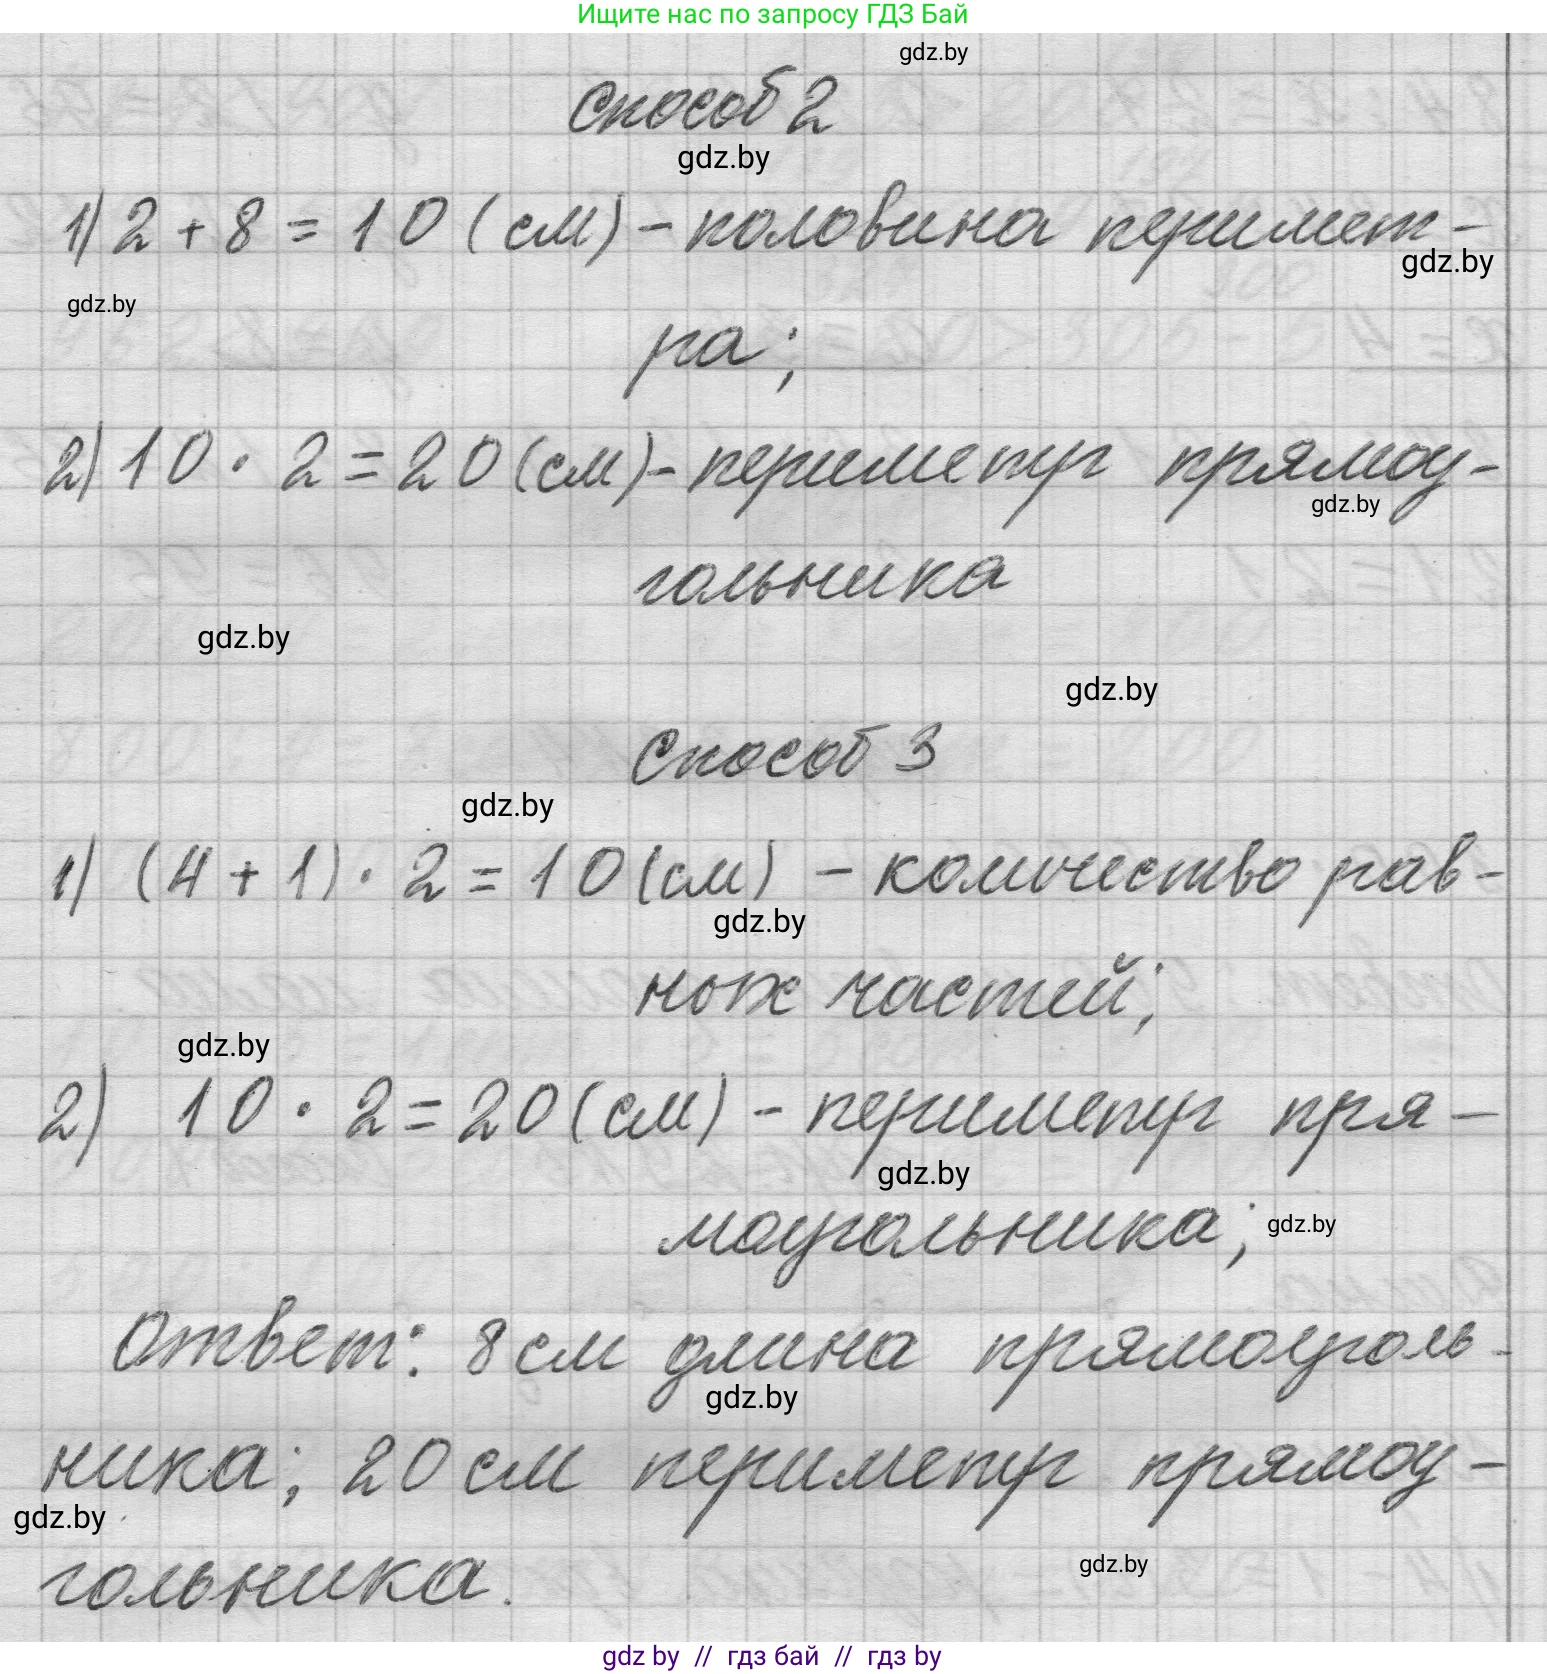 Ищите нас по запросу ГДЗ Бай
gdz.by
Способ 2
gdz.by
1) 2 + 8 = 10 (см) - половина перимет-
gdz.by
gdz.by
ра;
2) 10 · 2 = 20 (см) - периметр прямоу-
gdz.by
гольника
gdz.by
gdz.by
Способ 3
gdz.by
1) (4 + 1) · 2 = 10 (см) - количество рав-
gdz.by
ных частей;
gdz.by
2) 10 · 2 = 20 (см) - периметр пря-
gdz.by
моугольника;
gdz.by
Ответ: 8 см длина прямоуголь-
gdz.by
ника; 20 см периметр прямоу-
gdz.by
гольника.
gdz.by
gdz by // гдз бай // гдз by